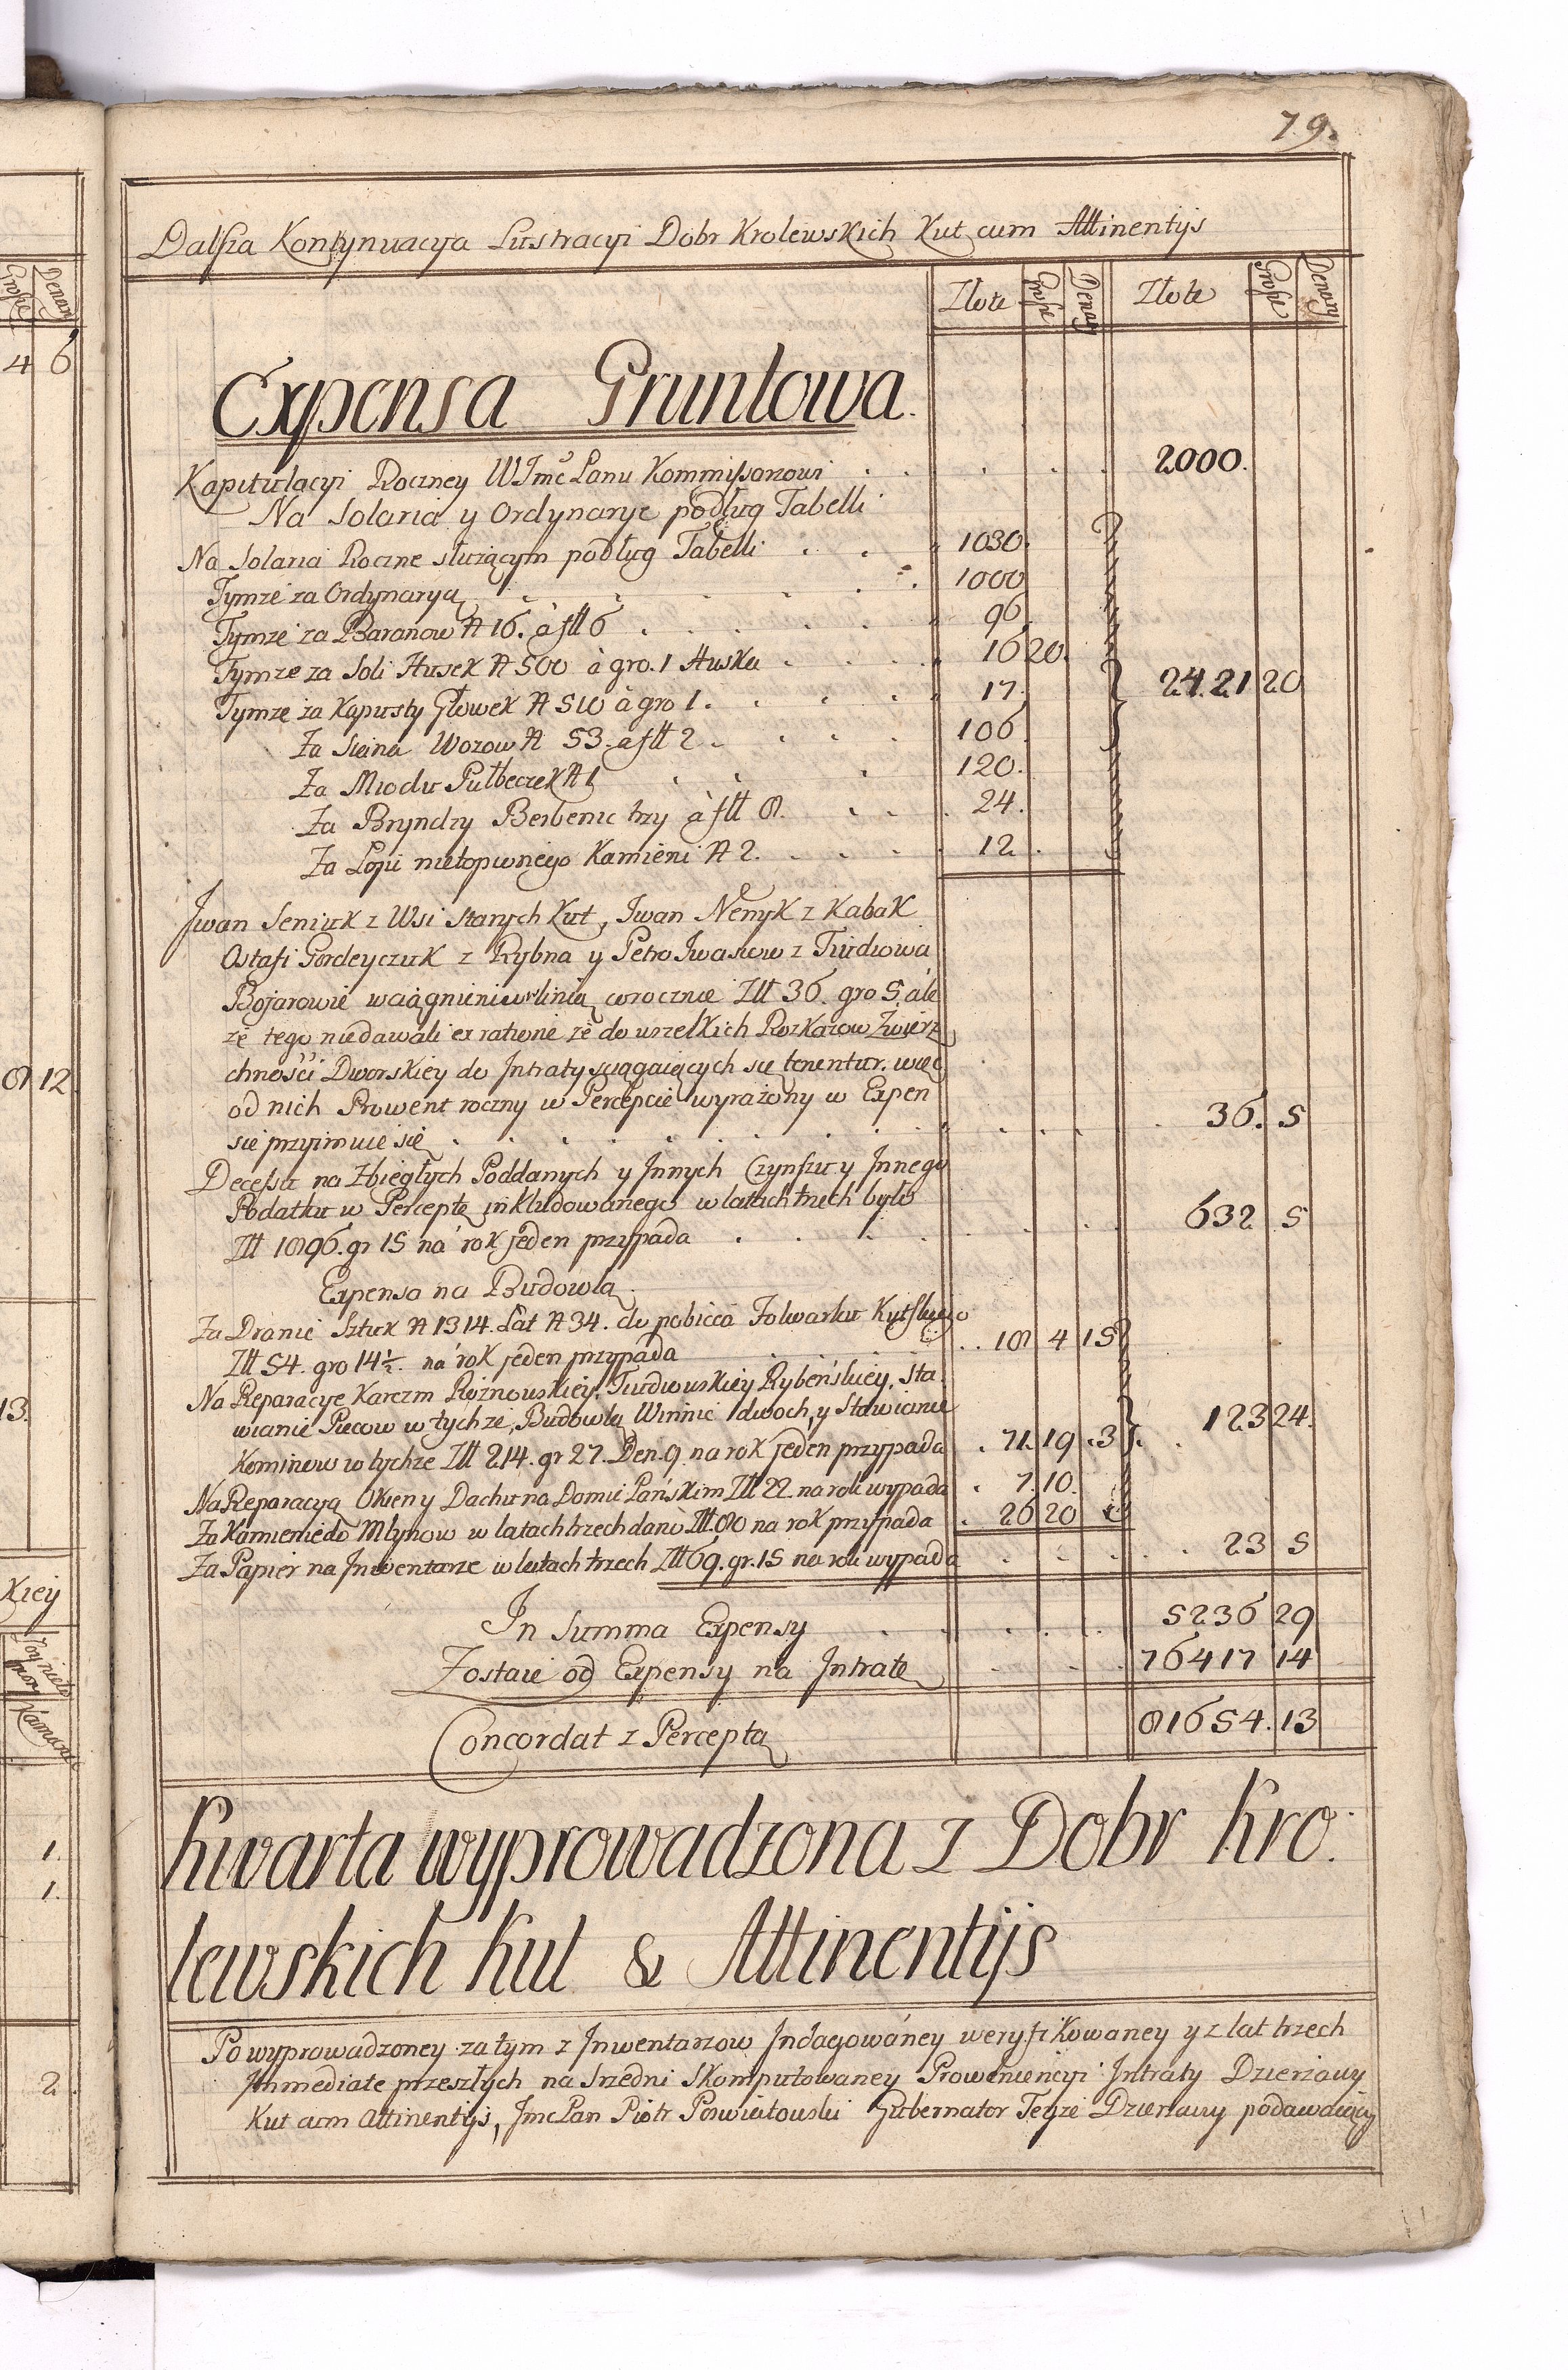 79.
Dalsza Kontynuacya Lustracyi Dobr Krolewskich Kut cum Attinentijs
Złote Grosze Denary Złote Grosze Denary
Expensa Gruntowa.
Kapitulacyi Roczney WJmć Panu Kommissarzowi . . . . . 2000.
Na Solaria y Ordynarye podług Tabelli
Na Solaria Roczne służącym podług Tabelli . . . 1030.
Tymże za Ordynaryą . . . . . 1000
Tymże za Baranow N 16. à fll 6 . . . . . 96
Tymże za Soli Husek N 500 à gro. 1 Huska . . . . 16 20.
2421 20
Tymże za Kapusty Głowek N 510 à gro 1. . . . . 17.
Za Siena Wozow N 53. a fll 2 . . . . 106
Za Miodu Pułbeczek N 1 . . . 120.
Za Bryndzy Berbenic trzy à fll 8. . . . 24.
Za Łoju nietopionego Kamieni N 2. . . . . 12.
Jwan Seniuk z Wsi Starych Kut, Jwan Nenyk z Kabak
Ostafi Gordeyczuk z Rybna y Petro Jwasiow z Tudiowa
Bojarowie wciągnieni w linią corocznie Zll 36. gro 5. ale
że tego niedawali ex ratione że do wszelkich Rozkazow Zwierz
chności Dworskiey do Jntraty sciągaiących się tenentur. więc
od nich Prowent roczny w Percepcie wyrażony w Expen
sie przyimuie się . . . . . . 36. 5
Decessu na Zbiegłych Poddanych y Jnnych Czynszu y Jnnego
Podatku w Perceptę inkludowanego w latach trzech było
Zll 1896. gr 15 na rok jeden przypada . . . . . 632 5
Expensa na Budowlą
Za Dranic Sztuk N 1314. Łat N 34. do pobicia Folwarku Kutskiego
Zll 54. gro 14½. na rok jeden przypada . . . . 18 4 15
Na Reparacye Karczm Rożnowskiey, Tudiowskiey Rybeńskiey, Sta
wianie Piecow w tychże, Budowlą Winnic dwoch, y Stawienie
123 24.
Kominow w tychże Zll 214. gr 27. Den. 9 na rok jeden przypada . 71. 19 . 3
Na Reparacyą Okien y Dachu na Domie Pańskim Zll 22. na rok wypada . 7. 10.
Za Kamienie do Młynow w latach trzech dano Zll. 80 na rok przypada . 26 20
Za Papier na Jnwentarze w latach trzech Zll 69. gr. 15 na rok wypada . . . . 23 5
Jn Summa Expensy . . . . 5236 29
Zostaie od Expensy na Jntratę . . . 76417 14
Concordat z Perceptą 81654. 13
Kwarta wyprowadzona z Dobr Kro.
lewskich Kut & Attinentijs
Po wyprowadzoney zatym z Jnwentarzow Jndagowaney weryfikowaney y z lat trzech
Jmmediate przeszłych na Sredni Skomputowaney Prowenienciyi Jntraty Dzierżawy
Kut cum Attinentijs, Jmć Pan Piotr Poswiatowski Gubernator Teyże Dzierżawy podawaiący
Grosze Denary
4 6
8 12
13.
Kiey
Kamieni
1.
1.
2.